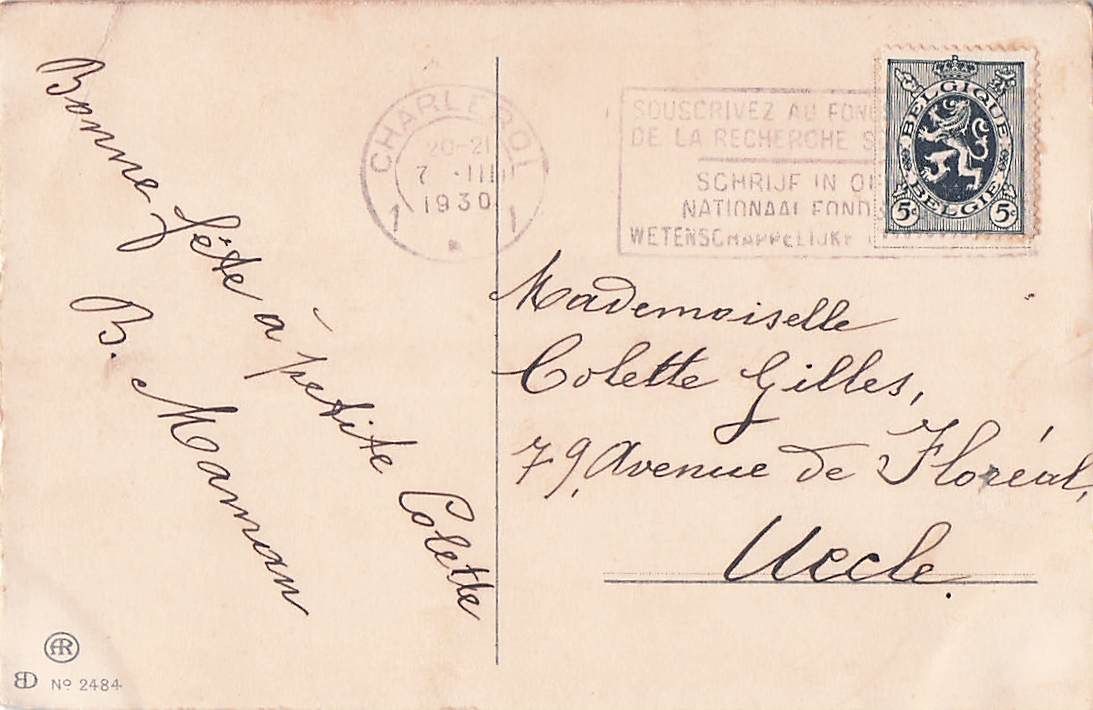 Bonne fête à petite Colette
B. Maman
CHARLEROI
20-21
7 ·III
1930
1 1
SOUSCRIVEZ AU FON
DE LA RECHERCHE S
SCHRIJF IN O
NATIONAAL FOND
WETENSCHAPPELIJKE
BELGIQUE
BELGIE
5c 5c
Mademoiselle
Colette Gilles,
79, Avenue de Floréal,
Uccle.
AR
BD No 2484